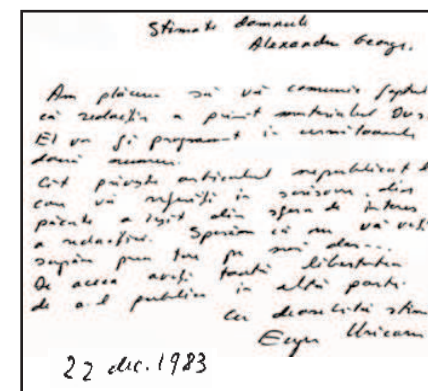 Stimate domnule
Alexandru George,
Am plăcerea să vă comunic faptul
că redacția a primit materialul Dvs.
El va fi programat în următoarele
două numere.
Cât privește articolul nepublicat de
care vă referiți în scrisoare, din
păcate a ieșit din sfera de interes
a redacției. Sperăm că nu vă veți
supăra prea tare pe noi dar...
De aceea aveți toată libertatea
de a-l publica în altă parte.
Cu deosebită stimă
Eugen Uricaru
22 dec. 1983